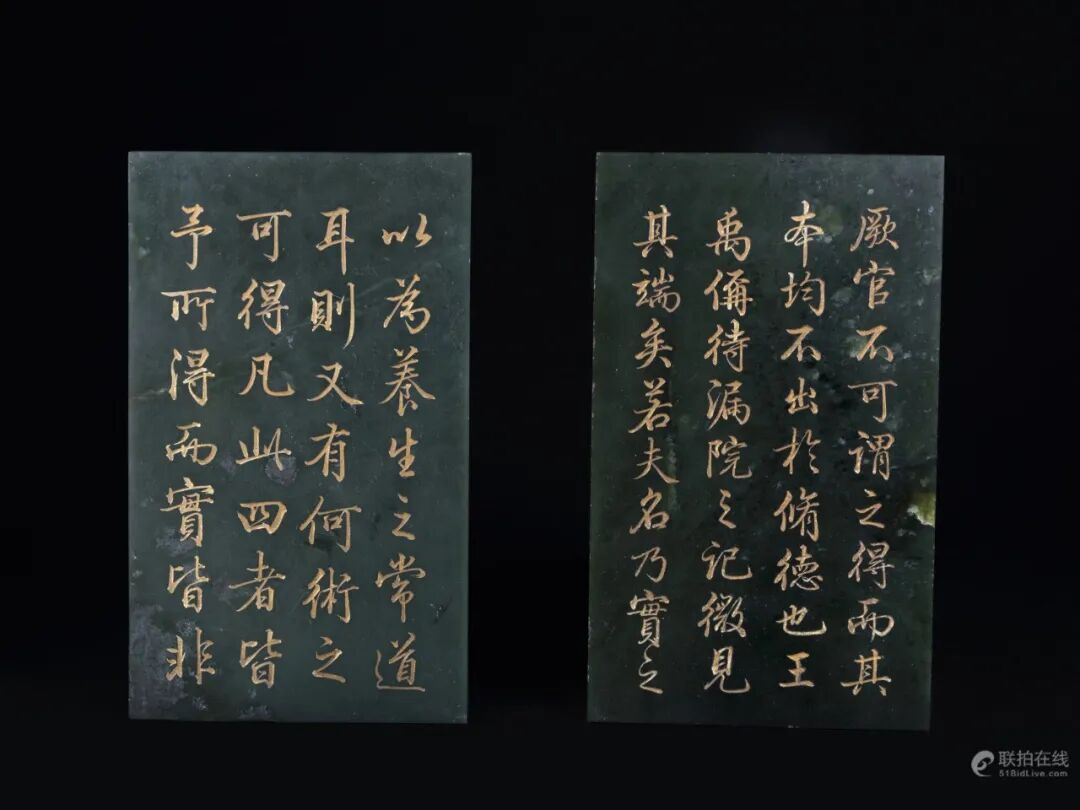 厥官不可謂之得而其
本均不出於脩德也王
禹偁待漏院之記微見
其端矣若夫名乃實之
以為養生之常道
耳則又有何術之
可得凡此四者皆
予所得而實皆非
联拍在线
518bidLive.com